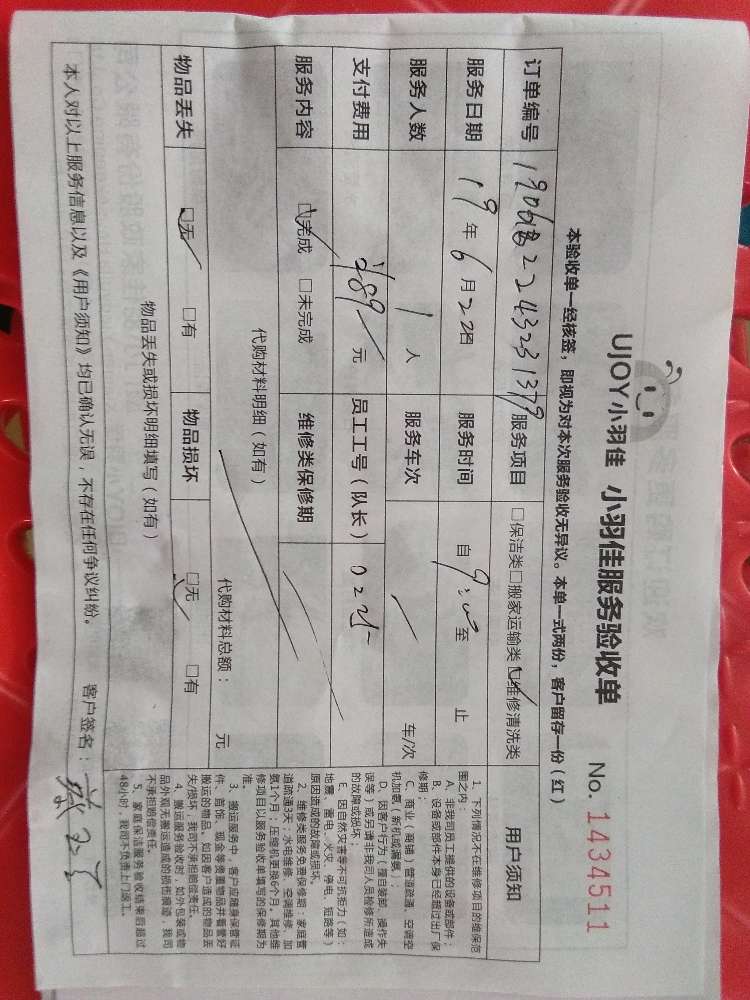 UJOY小羽佳 小羽佳服务验收单 No. 1434511
本验收单一经核签，即视为对本次服务验收无异议。本单一式两份，客户留存一份（红）
订单编号 服务项目 □保洁类□搬家运输类□维修清洗类 用户须知
服务日期 19年6月22日 服务时间 自 至 止
服务人数 1人 服务车次 车/次
支付费用 289元 员工工号（队长） 0225
服务内容 □完成 □未完成 维修类保修期
代购材料明细（如有） 代购材料总额： 元
物品丢失 □无 □有 物品损坏 □无 □有
物品丢失或损坏明细填写（如有）
本人对以上服务信息以及《用户须知》均已确认无误，不存在任何争议纠纷。 客户签名：
1、下列情况不在维修项目的维保范
围之内：
A、非我司员工提供的设备或部件；
B、设备或部件本身已经超过出厂保
修期；
C、商业（商铺）管道疏通、空调空
机加氨（新机或漏氨）；
D、因客户行为（擅自装卸、操作失
误等）或另请非我司人员检修所造成
的故障或损坏；
E、因自然灾害等不可抗拒力（如：
地震、雷电、火灾、停电、短路等）
原因造成的故障或损坏。
2、维修类服务免费保修期：家庭管
道疏通3天；水电维修、空调维修、加
氨1个月；压缩机更换6个月，其他维
修项目以服务验收单填写的保修期为
准。
3、搬运服务中，客户应随身保管证
件、首饰、现金等贵重物品并看管好
搬运的物品，如因客户造成的物品丢
失/损坏，我司不承担赔偿责任。
4、搬运服务验收时，如外包装或物
品外观无搬运造成的损伤痕迹，我司
不承担赔偿责任。
5、家庭保洁服务验收结束后超过
48小时，我司不负责上门返工。